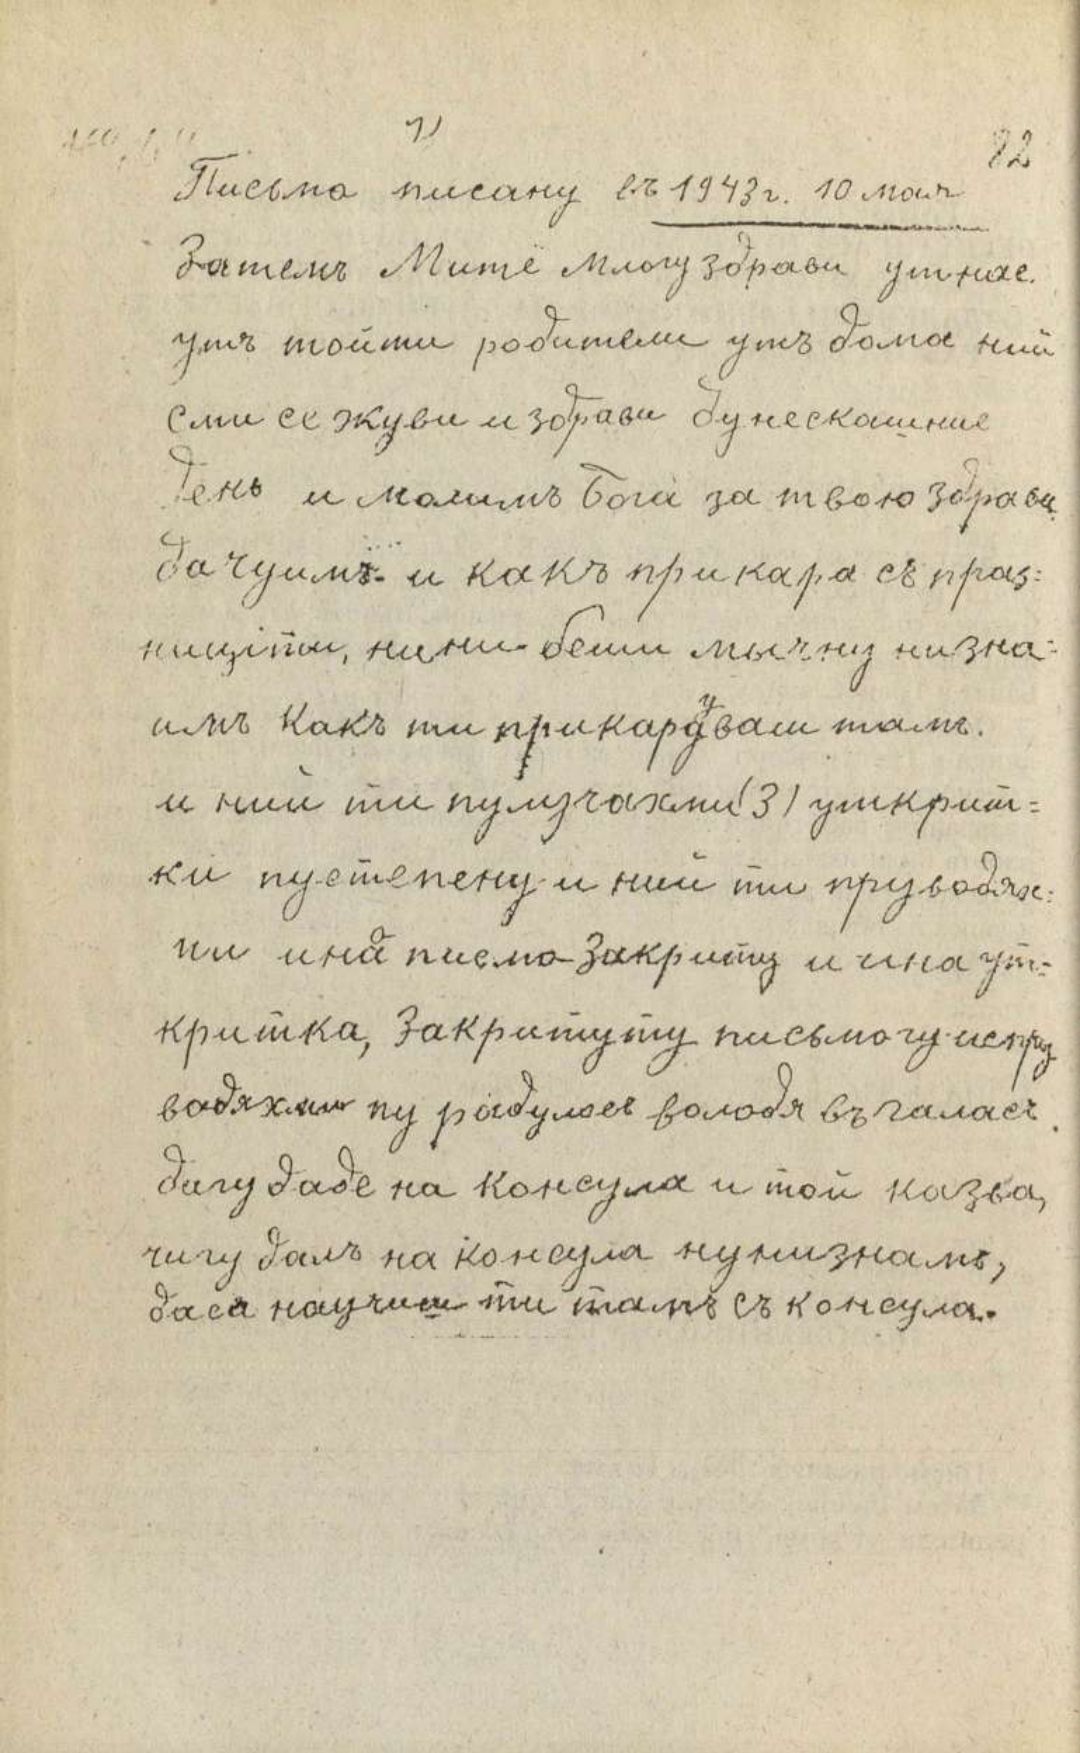 1)
82
Письмо писану въ 1943 г. 10 мая
Затемъ Митё млогу здрави ут нас.
утъ тойти родители утъ дома ний
сми се жуви и здрави ду нескашние
день и молимъ Бога за твою здрави
да чуимъ и какъ прикара съ праз=
ницiти, нини беши мычну низна=
имъ какъ ти прикаруваш тамъ.
и ний ти пулузчахми (3) уткрит=
ки пустепену и ний ти прувадях=
ми ина писмо закриту и ина ут=
критка, закритуту письмо гу испру
вадяхми пу радулов володя въ галасъ
дагу даде на консула и той казва,
чигу далъ на консула нунизнамъ,
даса научиш ти тамъ съ консула.